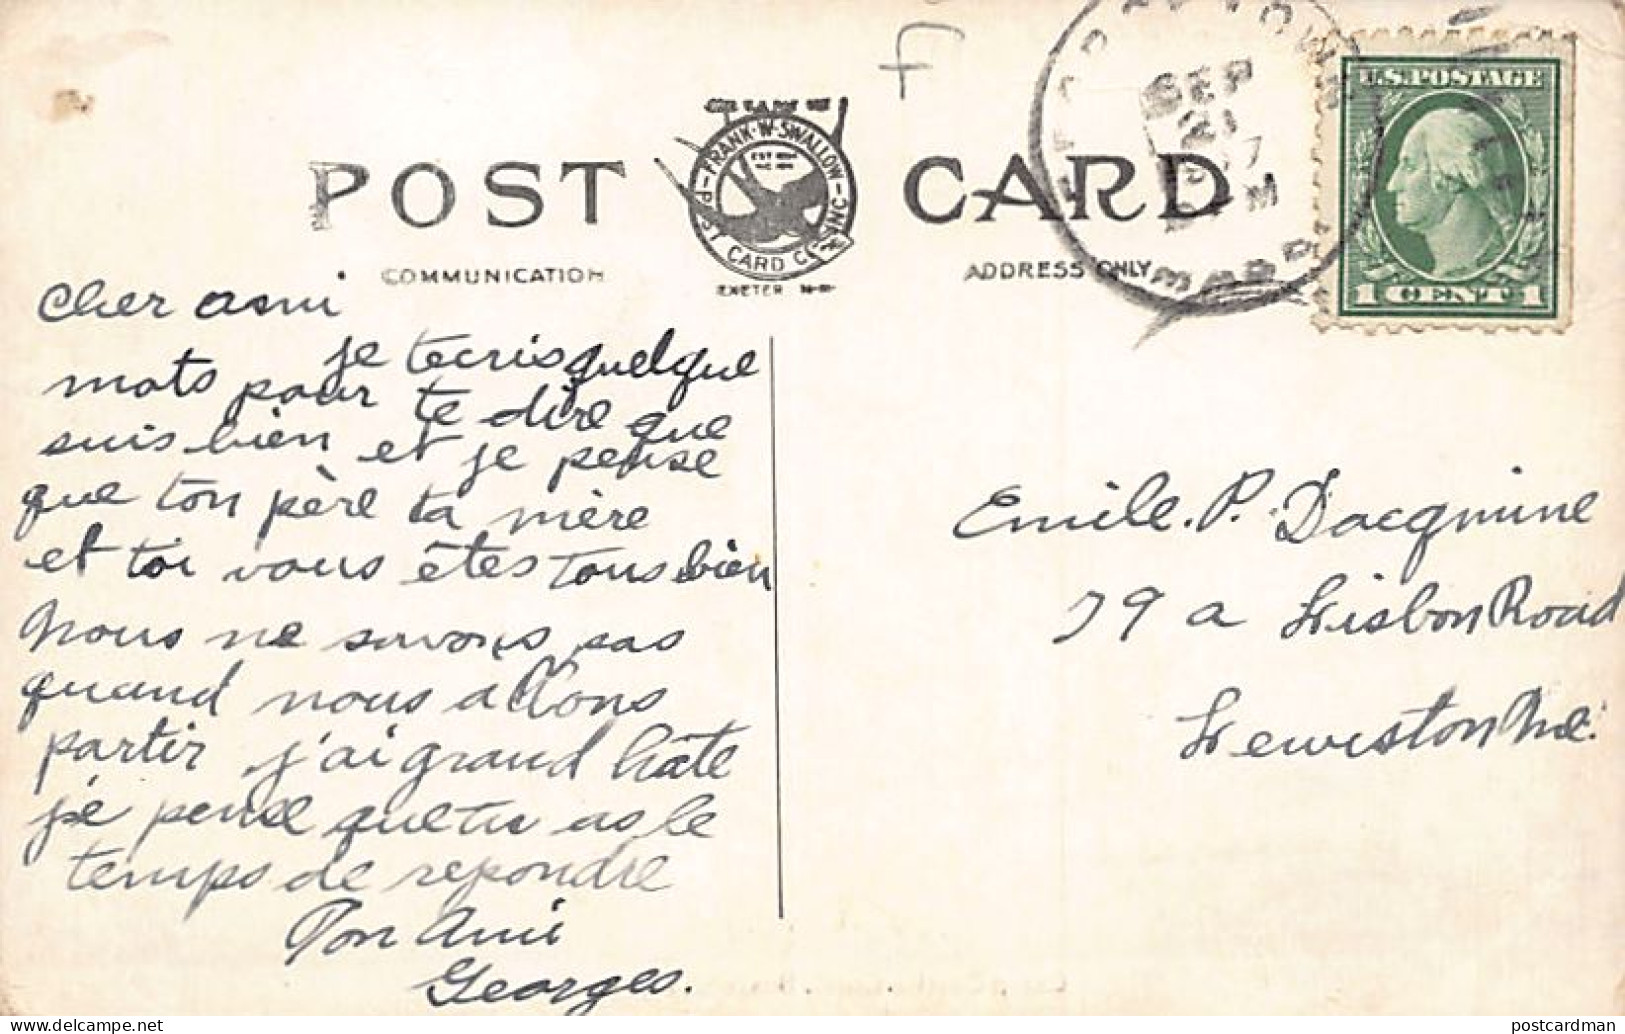 F
POST CARD
FRANK·W·SWALLOW
POST CARD CO. INC
EXETER N·H·
COMMUNICATION
ADDRESS ONLY
SEP
21
7
M
MASS
U.S.POSTAGE
1 CENT 1
Cher ami
je tecris quelque
mots pour te dire que
suis bien et je pense
que ton père ta mère
et toi vous êtes tous bien
Nous ne savons pas
quand nous allons
partir j'ai grand hâte
je pense que tu as le
temps de repondre
Ton Ami
Georges.
Emile. P. Dacqmine
79 a Lisbon Road
Lewiston Me.
postcards.delcampe.net
postcardman